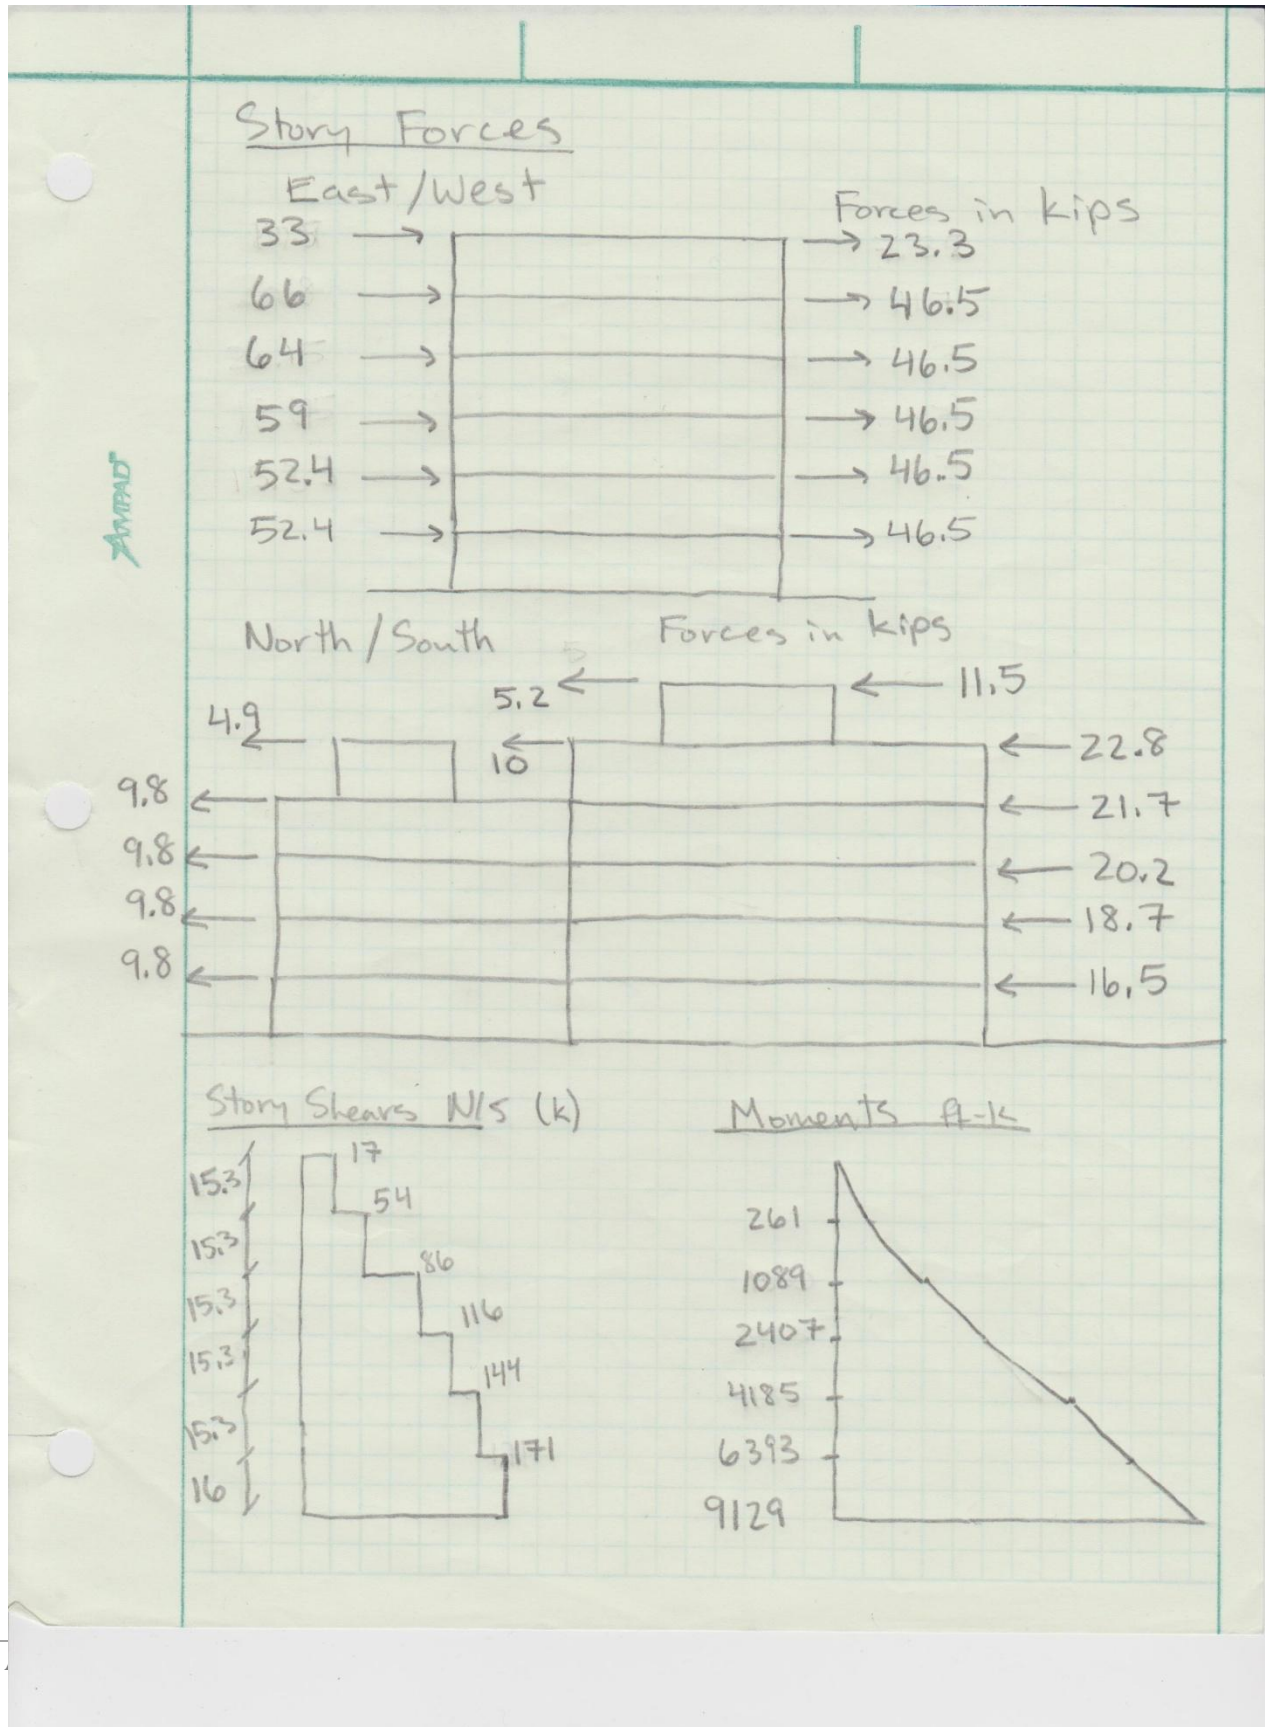 Story Forces
East/West
Forces in kips
33 23.3
66 46.5
64 46.5
59 46.5
52.4 46.5
52.4 46.5
AMPAD
North/South Forces in kips
5.2 11.5
4.9 10 22.8
9.8 21.7
9.8 20.2
9.8 18.7
9.8 16.5
Story Shears N/S (k)
17
15.3
54
15.3
86
15.3
116
15.3
144
15.3
171
16
Moments ft-k
261
1089
2407
4185
6393
9129